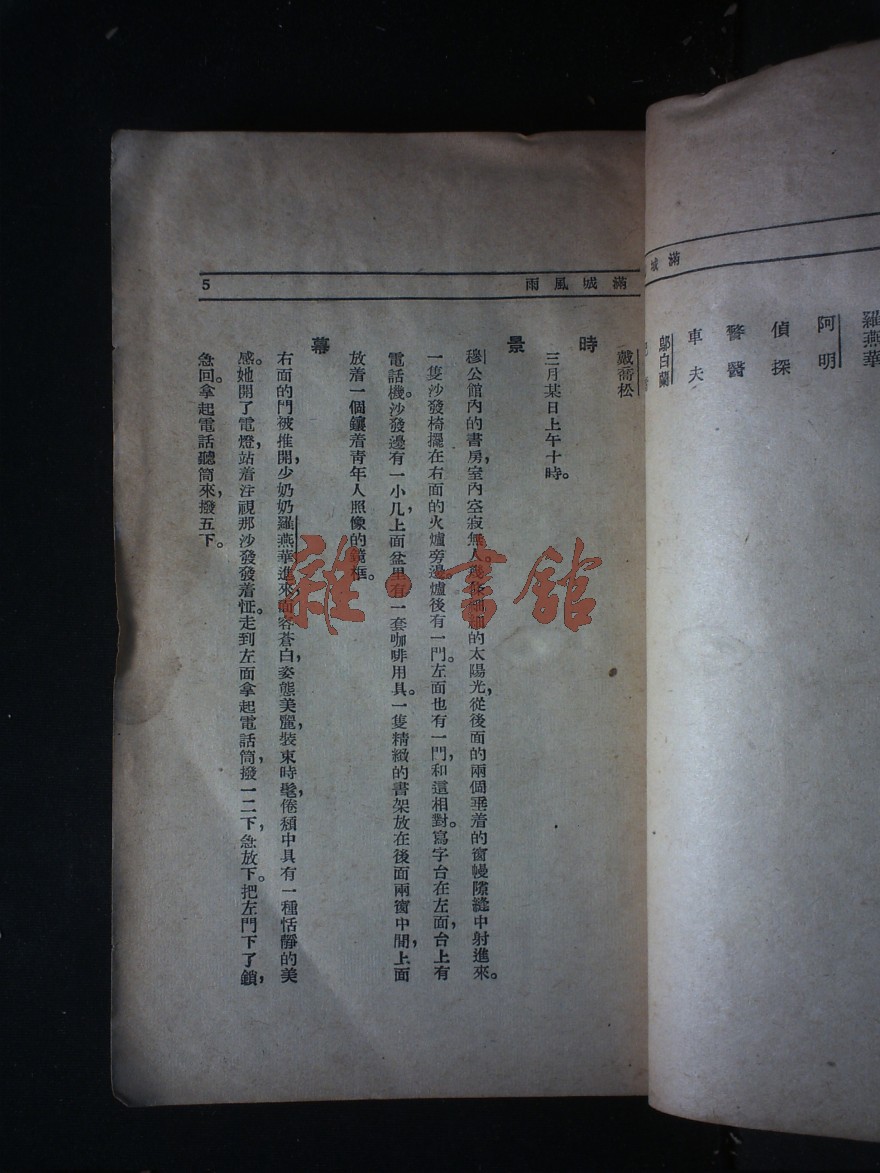 滿城
羅燕華
阿明
偵探
警醫
車夫
鄔白蘭
滿城風雨
5
戴喬松
時
三月某日上午十時。
景
穆公館內的書房，室內空寂無人。幾條細細的太陽光，從後面的兩個垂着的窗幔隙縫中射進來。
一隻沙發椅擺在右面的火爐旁邊，爐後有一門。左面也有一門，和這相對。寫字台在左面，台上有
電話機。沙發邊有一小几，上面盆里有一套咖啡用具。一隻精緻的書架放在後面兩窗中間，上面
放着一個鑲着青年人照像的鏡框。
幕
右面的門被推開，少奶奶羅燕華進來，面容蒼白，姿態美麗，裝束時髦，倦頹中具有一種恬靜的美
感。她開了電燈，站着注視那沙發發着怔。走到左面拿起電話筒，撥一二下，急放下。把左門下了鎖，
急回。拿起電話聽筒來，撥五下。
雜·書館